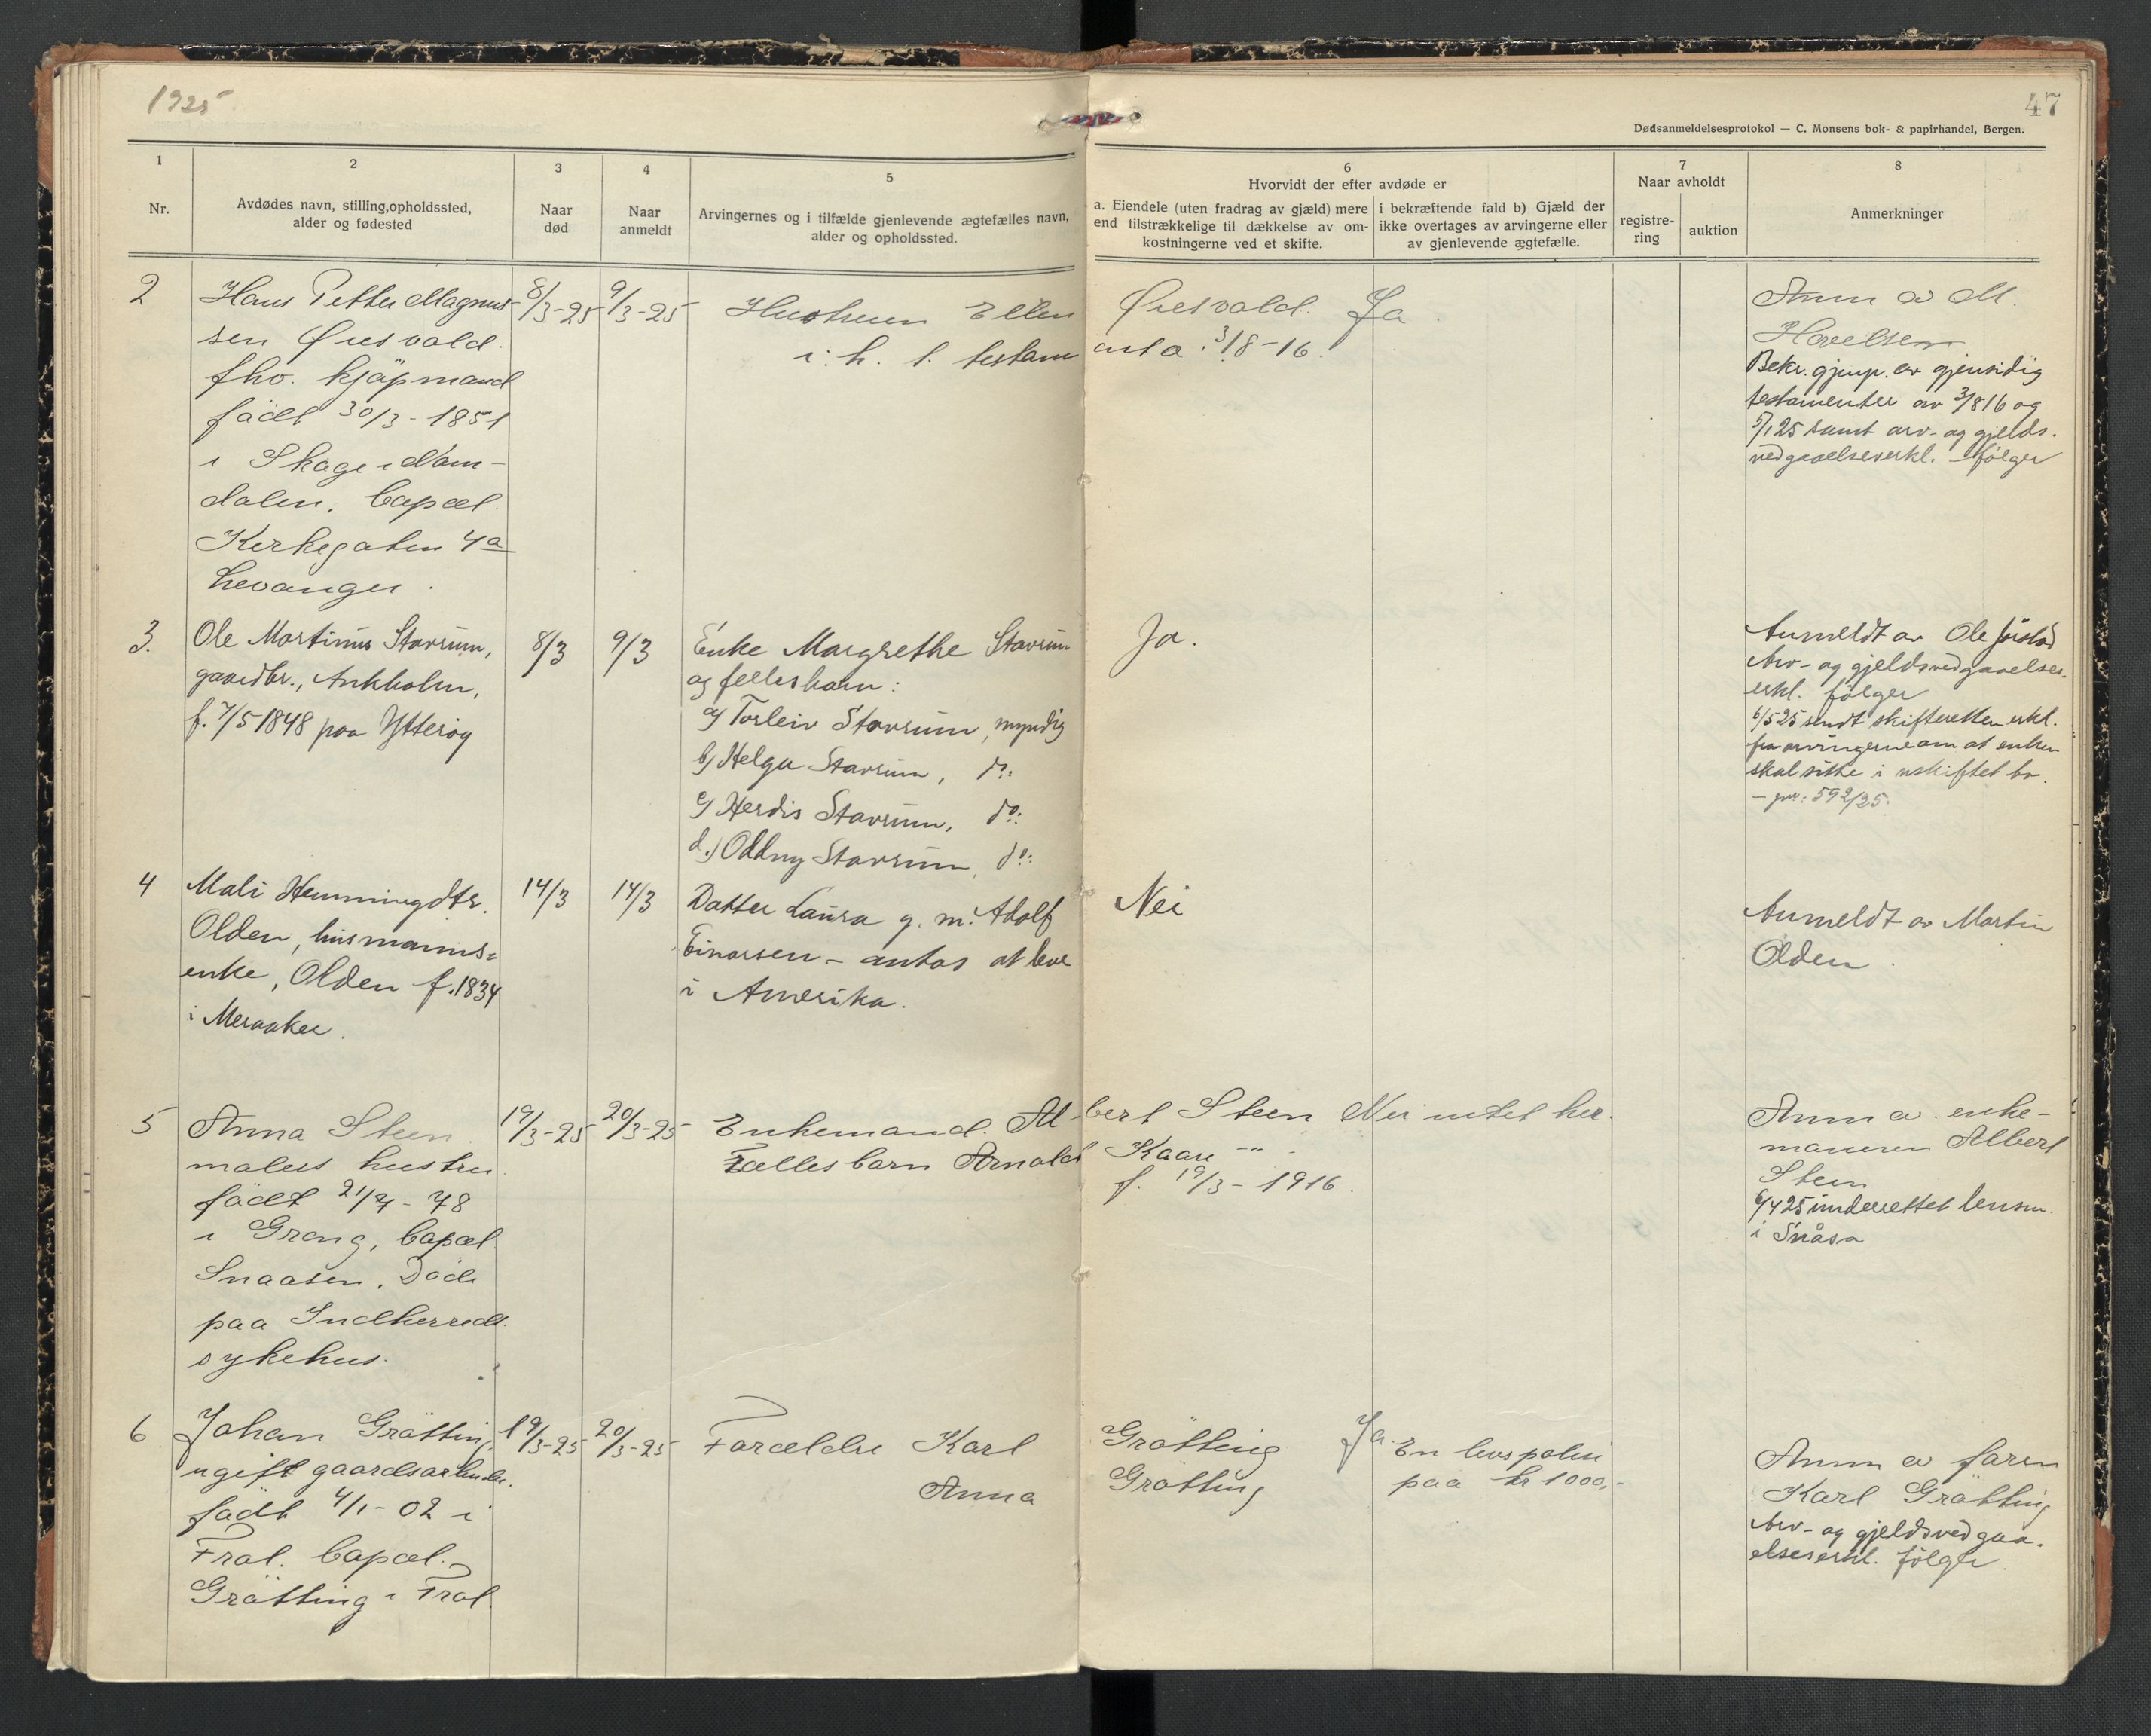 1925
47
Dødsanmeldelsesprotokol — C. Monsens bok- & papirhandel, Bergen.
1
Nr.
2
Avdødes navn, stilling, opholdssted,
alder og fødested
3
Naar
død
4
Naar
anmeldt
5
Arvingernes og i tilfælde gjenlevende ægtefælles navn,
alder og opholdssted.
6
Hvorvidt der efter avdøde er
a. Eiendele (uten fradrag av gjæld) mere
end tilstrækkelige til dækkelse av om-
kostningerne ved et skifte.
i bekræftende fald b) Gjæld der
ikke overtages av arvingerne eller
av gjenlevende ægtefælle.
7
Naar avholdt
registre-
ring
auktion
8
Anmerkninger
2
Hans Petter Magnus-
sen Øiesvold
fhv. kjøpmand
födt 30/3 - 1851
i Skage i Nam-
dalen, bopæl
Kirkegaten 4a
Levanger.
8/3-25
9/3-25
Hustruen Ellen Øiesvold.
i. h. t. testam
3/8-16.
Ja
Anm av M.
Bekr. gjenp. av gjensidig
testamenter av 3/8 16 og
5/1 25 samt arv- og gjelds-
vedgaaelseserkl. følger
3.
Ole Martinus Stavrum,
gaardbr., Ankholm,
f. 7/5 1848 paa Ytterøy
8/3
9/3
Enke Margrethe Stavrum
og fellesbarn:
a) Torleiv Stavrum, myndig
b) Helga Stavrum, do:
c) Herdis Stavrum, do:
d.) Oddny Stavrum, do:
Ja.
Anmeldt av Ole Jørstad
Arv- og gjeldsvedgaaelses-
erkl. følger
6/5 25 sendt skifteretten erkl.
fra arvingerne om at enken
skal sitte i uskiftet bo.
- jnr: 592/25.
4
Mali Hemmingsdtr.
Olden, husmanns=
enke, Olden f. 1834
i Meraaker.
14/3
14/3
Datter Laura g. m. Adolf
Einarsen - antas at leve
i Amerika.
Nei
Anmeldt av Martin
Olden.
5
Anna Steen
malers hustru
födt 21/4 - 78
i Grong, bopæl
Snaasen. Död
paa Indherreds
sykehus.
19/3-25
20/3-25
Enkemand. Albert Steen
Fællesbarn Arnold Kaare " "
f. 19/3 - 1916.
Nei intet her.
Anm av enke-
manden Albert
Steen
6/4 25 underrettet lensm.
i Snåsa
6
Johan Grötting,
ugift gaardsarbeider.
födt 4/1 - 02 i
Frol. bopæl
Grötting i Frol.
19/3-25
20/3-25
Forældre Karl Grötting
Anna Grötting
Ja.
En livspolise
paa kr 1000,-
Anm av faren
Karl Grötting
Arv- og gjeldsvedgaa-
elseserkl. følger.